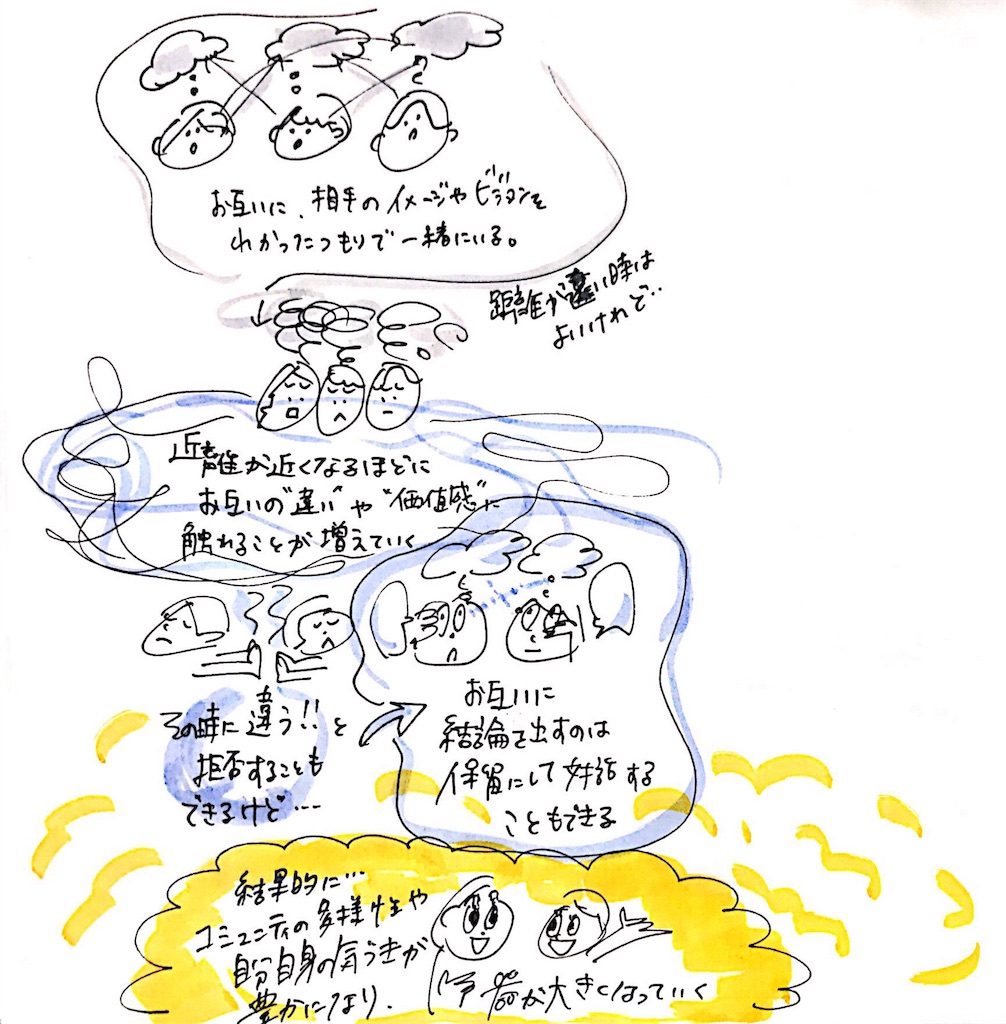 お互いに、相手のイメージやビジョンを
わかったつもりで一緒にいる。
距離が遠い時は
よいけれど‥
近離が近くなるほどに
お互いの"違い"や"価値感"に
触れることが増えていく
その時に違う!!と
拒否することも
できるけど‥‥
お互いに
結論を出すのは
保留にして対話する
こともできる
結果的に…
コミュニティの多様性や
自分自身の気づきが
豊かになり、
器が大きくなっていく